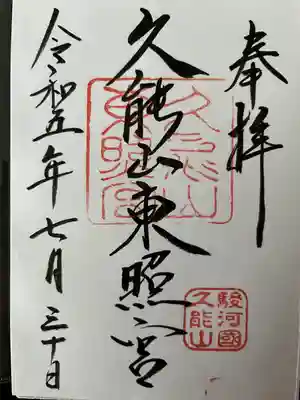 奉拝
久能山東照宮
久能山東照宮
駿河國久能山
令和五年七月三十日